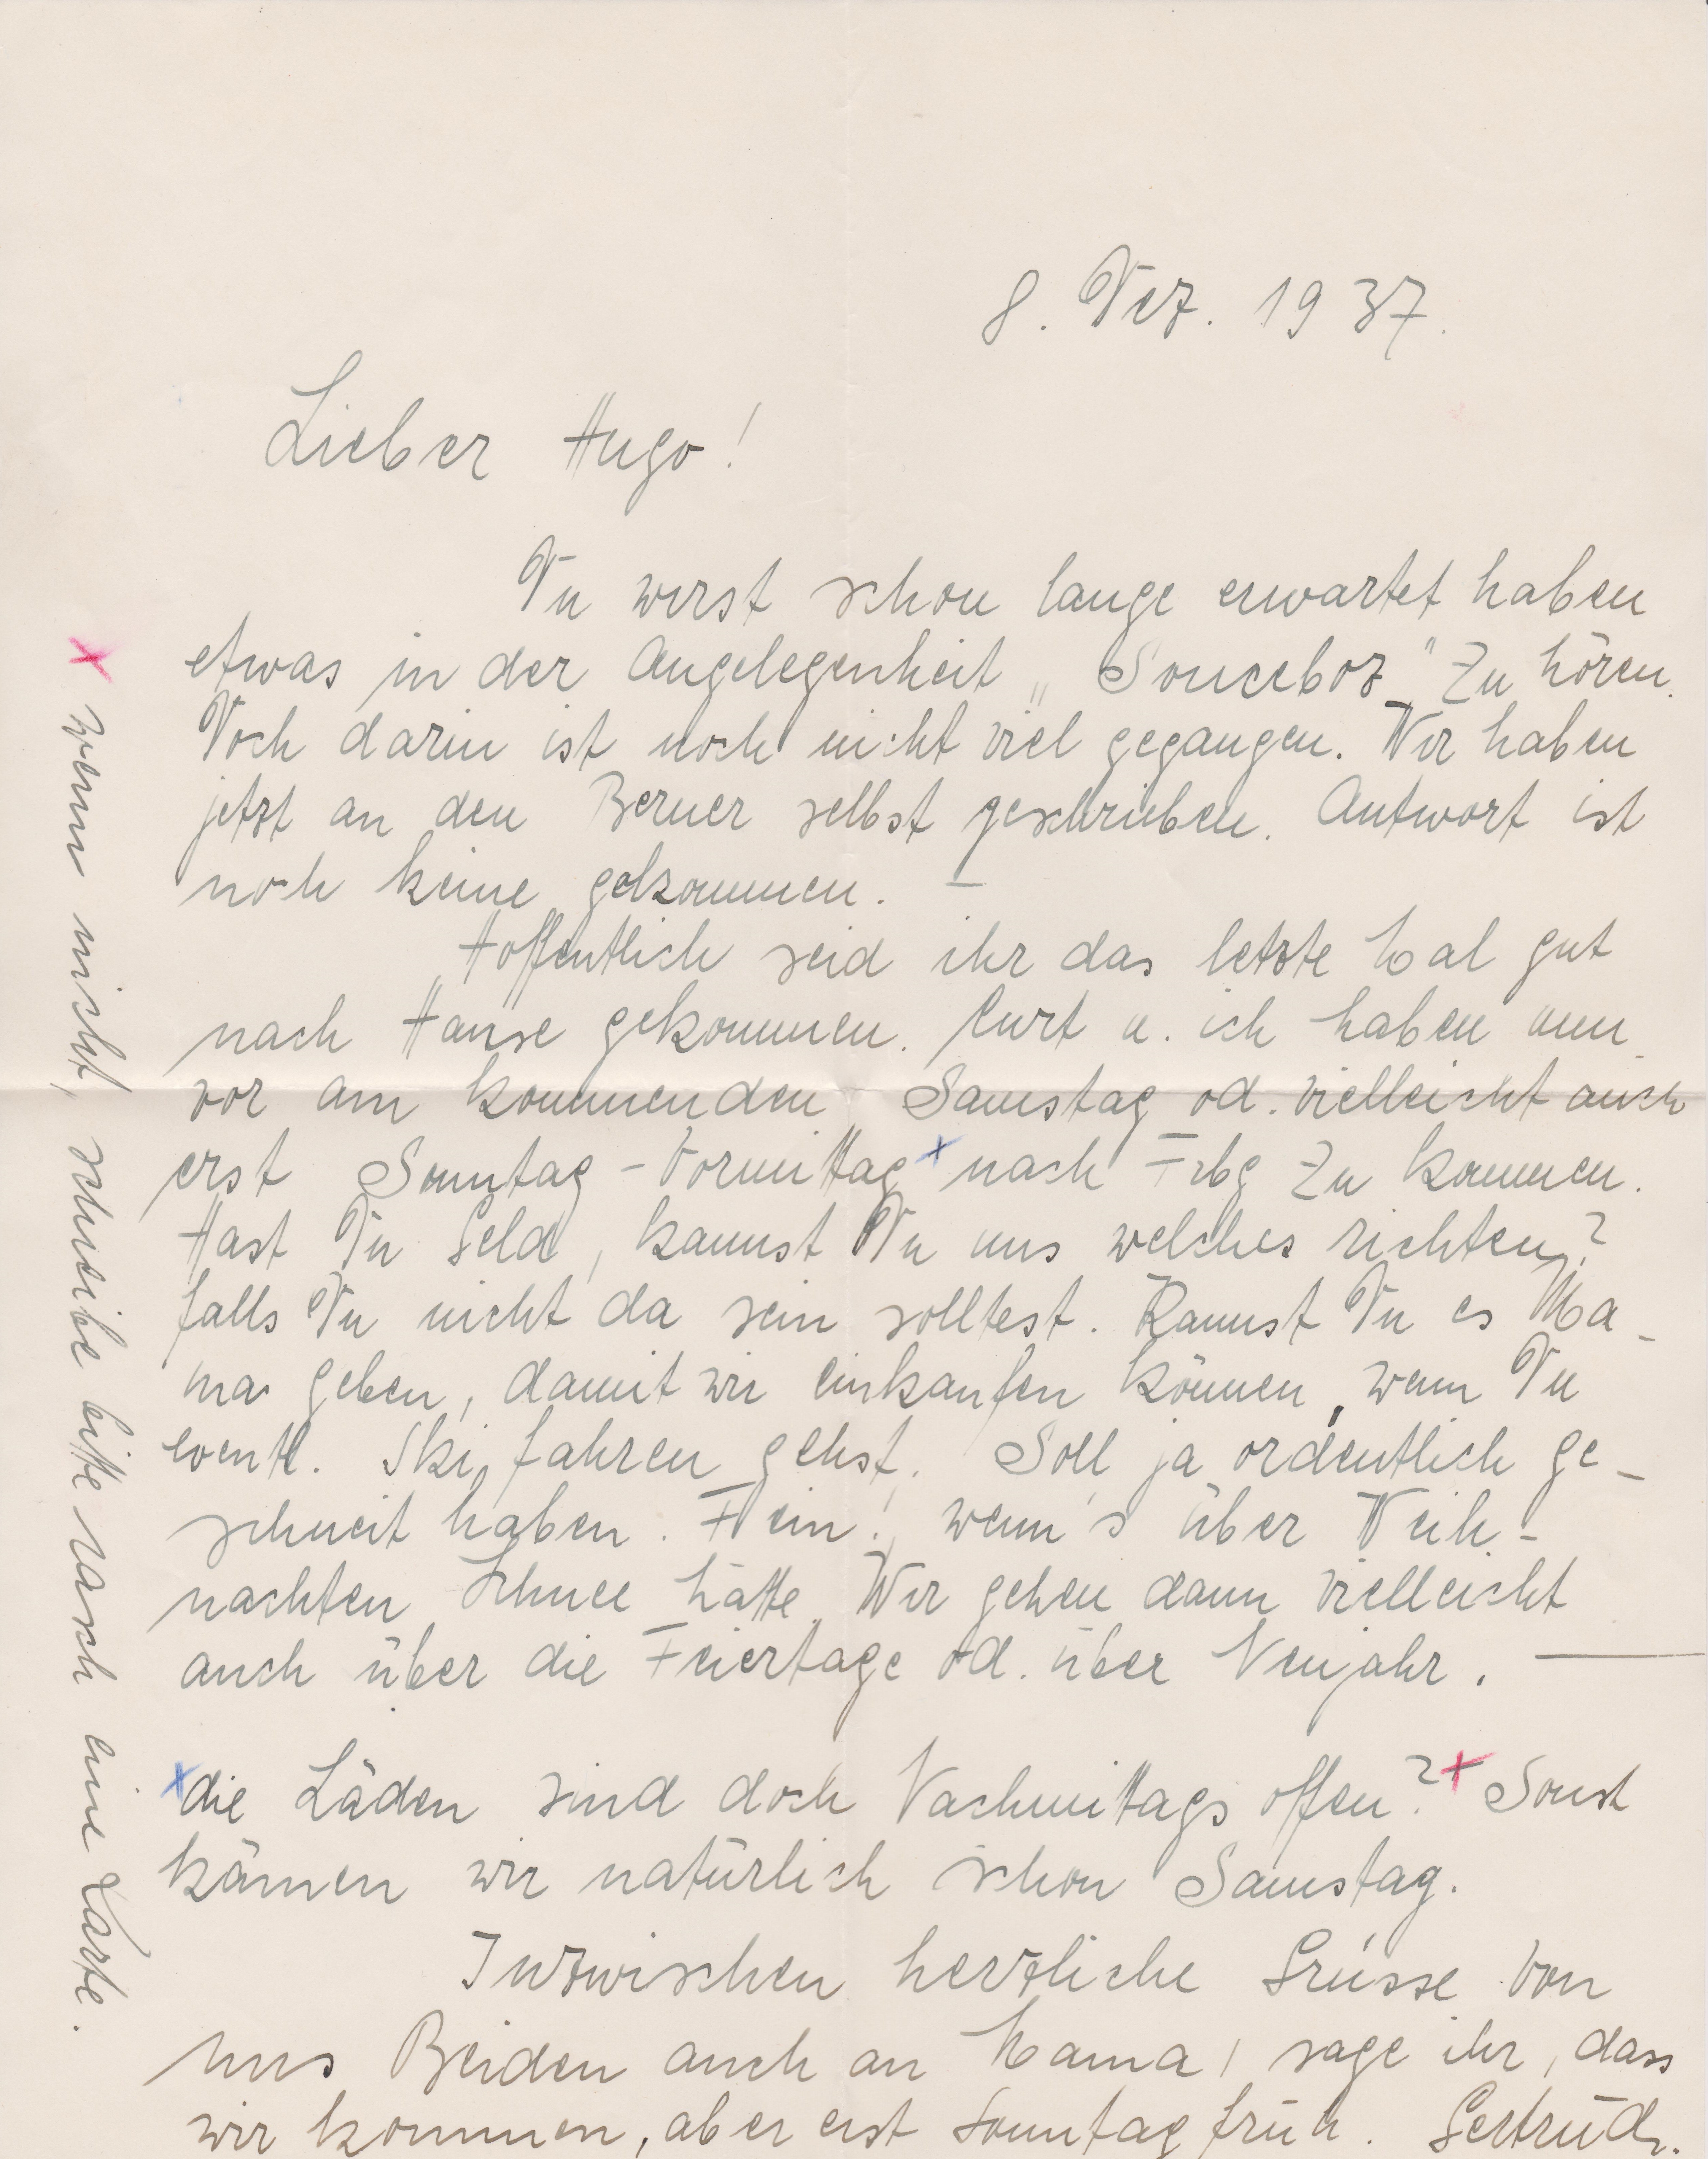 8. Dez. 1937.
Lieber Hugo!
Du wirst schon lange erwartet haben
etwas in der Angelegenheit „Sonceboz" zu hören.
Doch darin ist noch nicht viel gegangen. Wir haben
jetzt an den Berner selbst geschrieben. Antwort ist
noch keine gekommen. –
Hoffentlich seid ihr das letzte Mal gut
nach Hause gekommen. Curt u. ich haben nun
vor am kommenden Samstag od. vielleicht auch
erst Sonntag-Vormittag x nach Frbg zu kommen.
Hast Du Geld, kannst Du uns welches richten?
falls Du nicht da sein solltest. Kannst Du es Ma-
ma geben, damit wir einkaufen können, wenn Du
eventl. Ski fahren gehst. Soll ja ordentlich ge-
schneit haben. Fein! wenn's über Weih-
nachten Schnee hätte. Wir gehen dann vielleicht
auch über die Feiertage od. über Neujahr. —
x die Läden sind doch Nachmittags offen? x Sonst
kämen wir natürlich schon Samstag.
Inzwischen herzliche Grüsse von
uns Beiden auch an Mama, sage ihr, dass
wir kommen, aber erst Sonntag früh. Gertrud.
x wenn nicht, schreibe bitte rasch eine Karte.